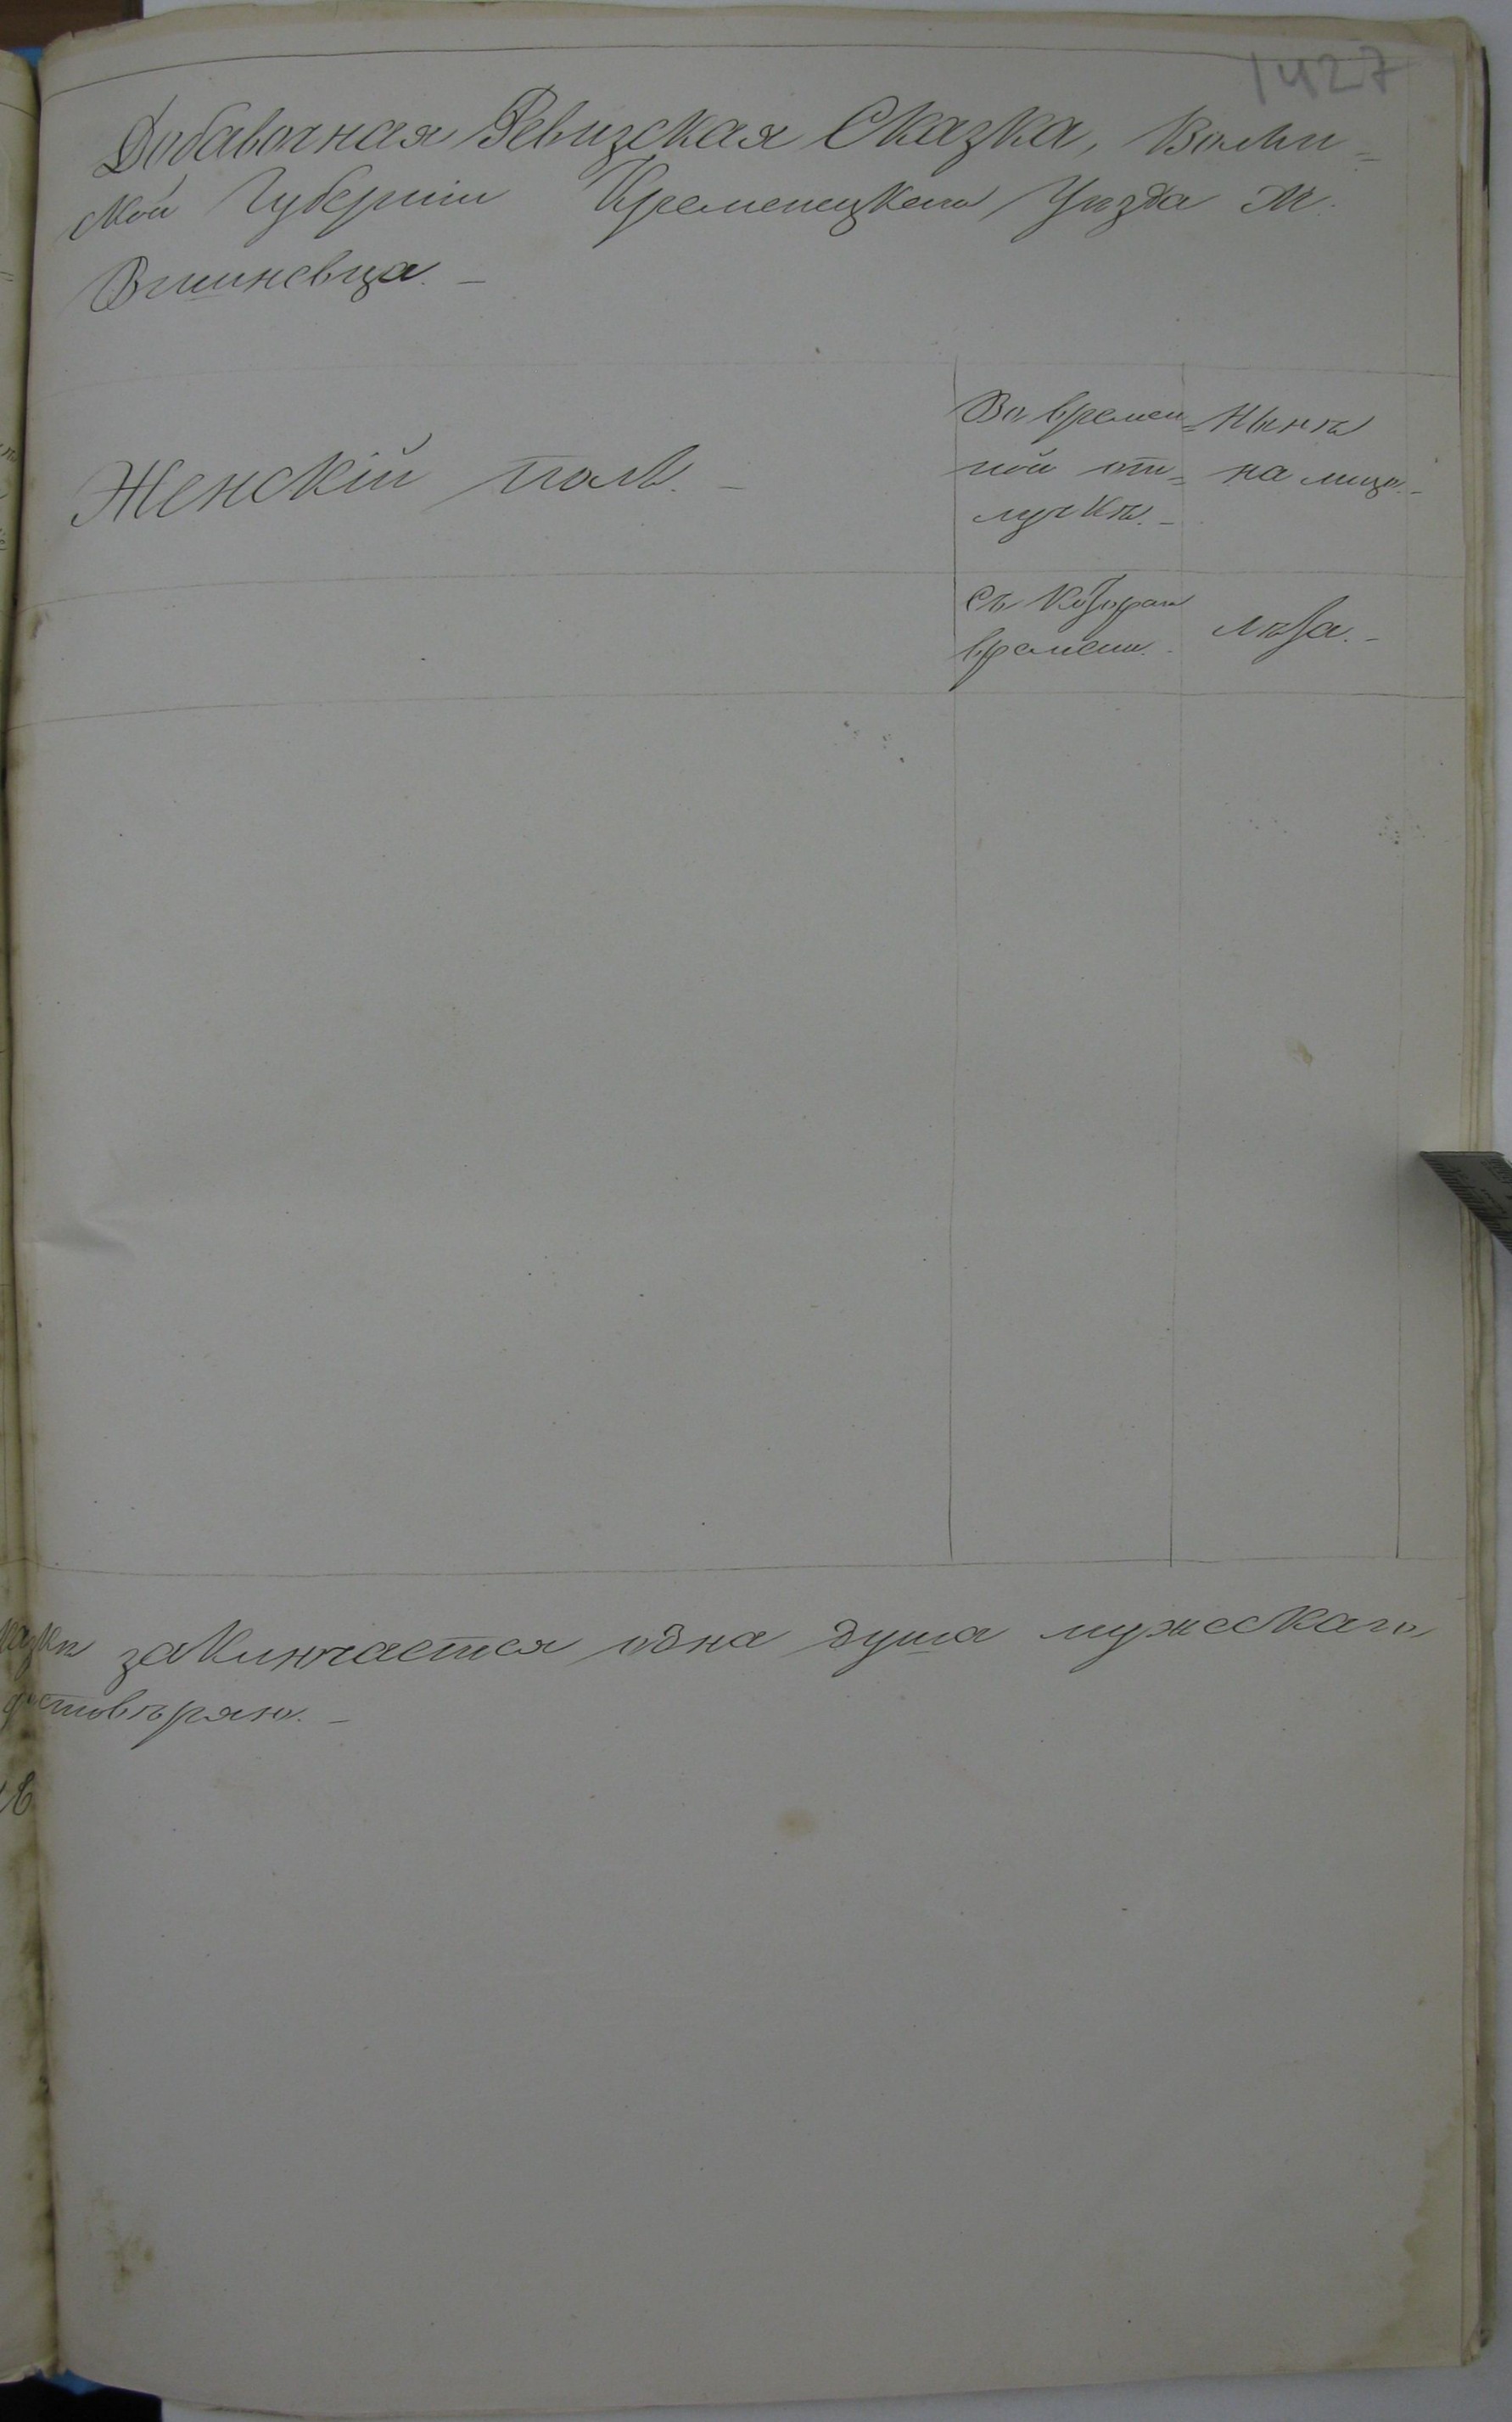 1427
Добавочная Ревизская Сказка, Волын=
ской Губерніи Кременецкаго Уѣзда М.
Вишневца. –
Женскій полъ. –
Во времен=
ной от=
лучкѣ. –
Нынѣ
на лицо. –
Съ котораго
времени.
Лѣта. –
заключается одна душа мужескаго
стовѣряю. –